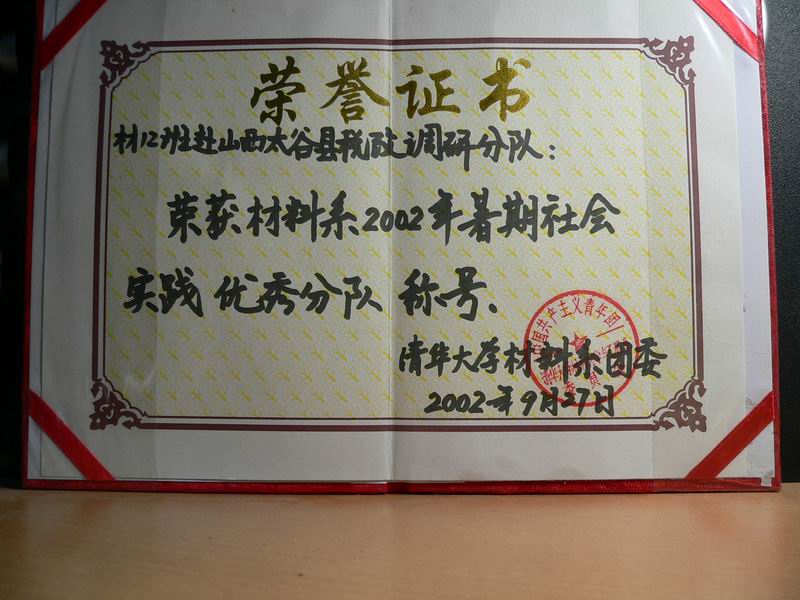 荣誉证书
材12班赴山西太谷县税政调研分队:
荣获材料系2002年暑期社会
实践优秀分队称号.
中国共产主义青年团
清华大学材料系团委
委员
2002年9月27日